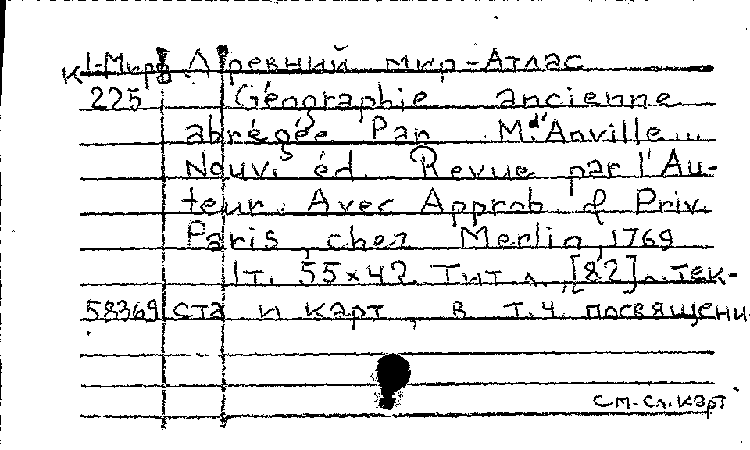 К 1-Мира Древний мир-Атлас
225 Géographie ancienne
abrégée Par M. d'Anville...
Nouv. éd. Revue par l'Au-
teur. Avec Approb & Priv.
Paris, chez Merlin, 1769
1т. 55х42. Тит л., [82] л. тек-
58369 ста и карт, в т.ч. посвящени
См. Сл. карт